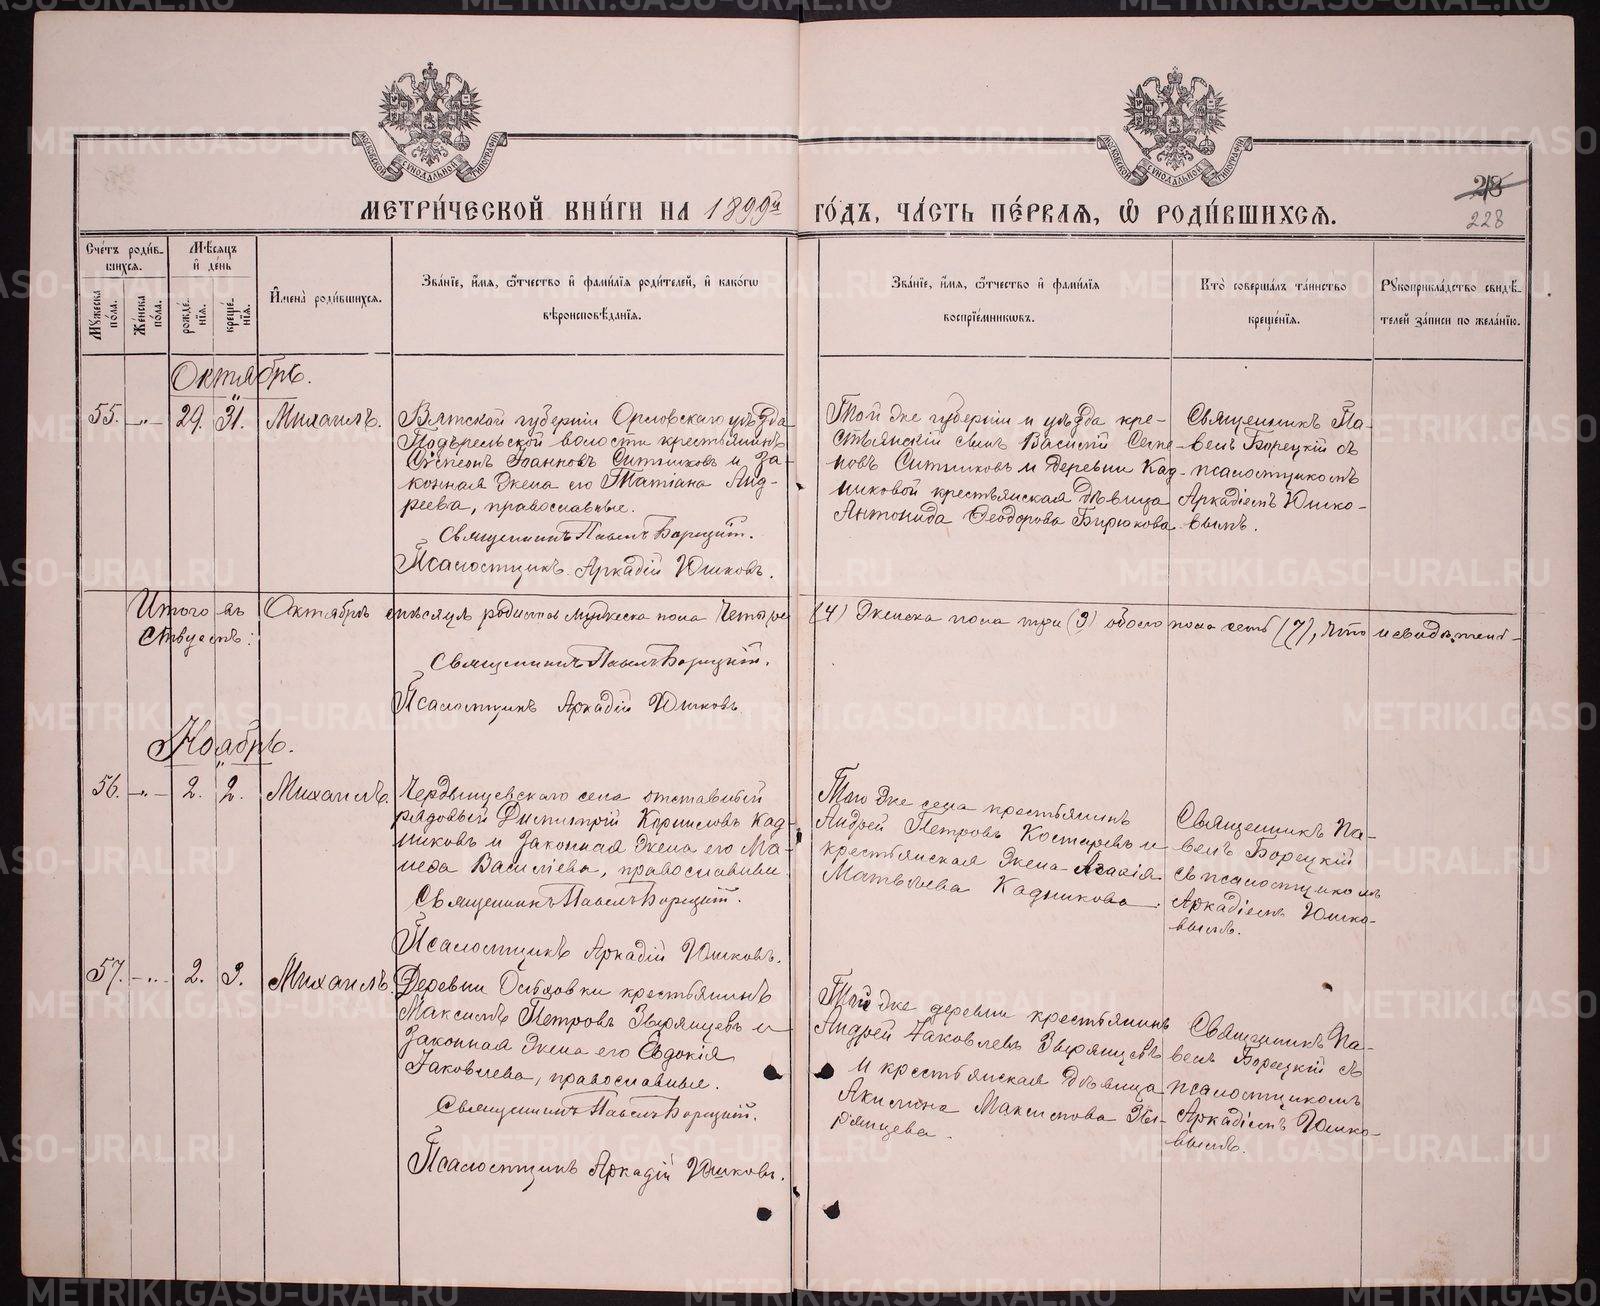 МЕТРИ́ЧЕСКОЙ КНИ́ГИ НА 1899й ГО́ДЪ, ЧА́СТЬ ПЕ́РВАЯ, Ѡ РОДИ́ВШИХСЯ.
218
228
Сче́тъ роди́в-
шихся.
Мѣ́сяцъ
и҆ де́нь
Му́жеска по́ла.
Же́нска по́ла.
рожде́нїя.
креще́нїя.
И҆мена̀ роди́вшихся.
Зва́нїе, и҆́мя, ѻ҆́тчество и҆ фами́лїя роди́телей, и҆ како́гѡ
вѣроисповѣ́данїя.
Зва́нїе, и҆́мя, ѻ҆́тчество и҆ фами́лїя
воспрїе́мникѡвъ.
Кто̀ соверша́лъ та́инство
креще́нїя.
Рꙋкоприкла́дство свидѣ́-
телей за́писи по жела́нїю.
Октябрь.
55. -„- 29. 31. Михаилъ.
Вятской губерніи Орловскаго уѣзда
Подърельской волости крестьянинъ
Стефанъ Іоанновъ Ситниковъ и за-
конная жена его Татіана Анд-
реева, православные.
Священникъ Павелъ Борецкій.
Псаломщикъ Аркадій Юшковъ.
Той же губерніи и уѣзда кре-
стьянскій сынъ Василій Степа-
новъ Ситниковъ и деревни Кад-
никовой крестьянская дѣвица
Антонида Ѳеодорова Бирюкова
Священникъ Па-
велъ Борецкій съ
псаломщикомъ
Аркадіемъ Юшко-
вымъ.
Итого въ Октябрѣ мѣсяцѣ родилось мужеска пола четыре (4) женска пола три (3) обоего пола семь (7), что и свидѣтель-
ствуемъ:
Священникъ Павелъ Борецкій.
Псаломщикъ Аркадій Юшковъ
Ноябрь.
56. -„- 2. 2. Михаилъ.
Чердынцевскаго села отставной
рядовый Димитрій Корниловъ Кад-
никовъ и законная жена его Ма-
Василіева, православные.
Священникъ Павелъ Борецкій.
Псаломщикъ Аркадій Юшковъ.
Того же села крестьянинъ
Андрей Петровъ Костаревъ и
крестьянская жена Агафія
Матвѣева Кадникова.
Священникъ Па-
велъ Борецкій
съ псаломщикомъ
Аркадіемъ Юшко-
вымъ.
57. -„- 2. 3. Михаилъ.
Деревни крестьянинъ
Максимъ Петровъ Зверянцевъ и
законная жена его Евдокія
Іаковлева, православные.
Священникъ Павелъ Борецкій.
Псаломщикъ Аркадій Юшковъ.
Той же деревни крестьянинъ
Андрей Іаковлевъ Зверянцевъ
и крестьянская дѣвица
Акилина Максимова Зве-
рянцева.
Священникъ Па-
велъ Борецкій съ
псаломщикомъ
Аркадіемъ Юшко-
вымъ.
METRIKI.GASO-URAL.RU